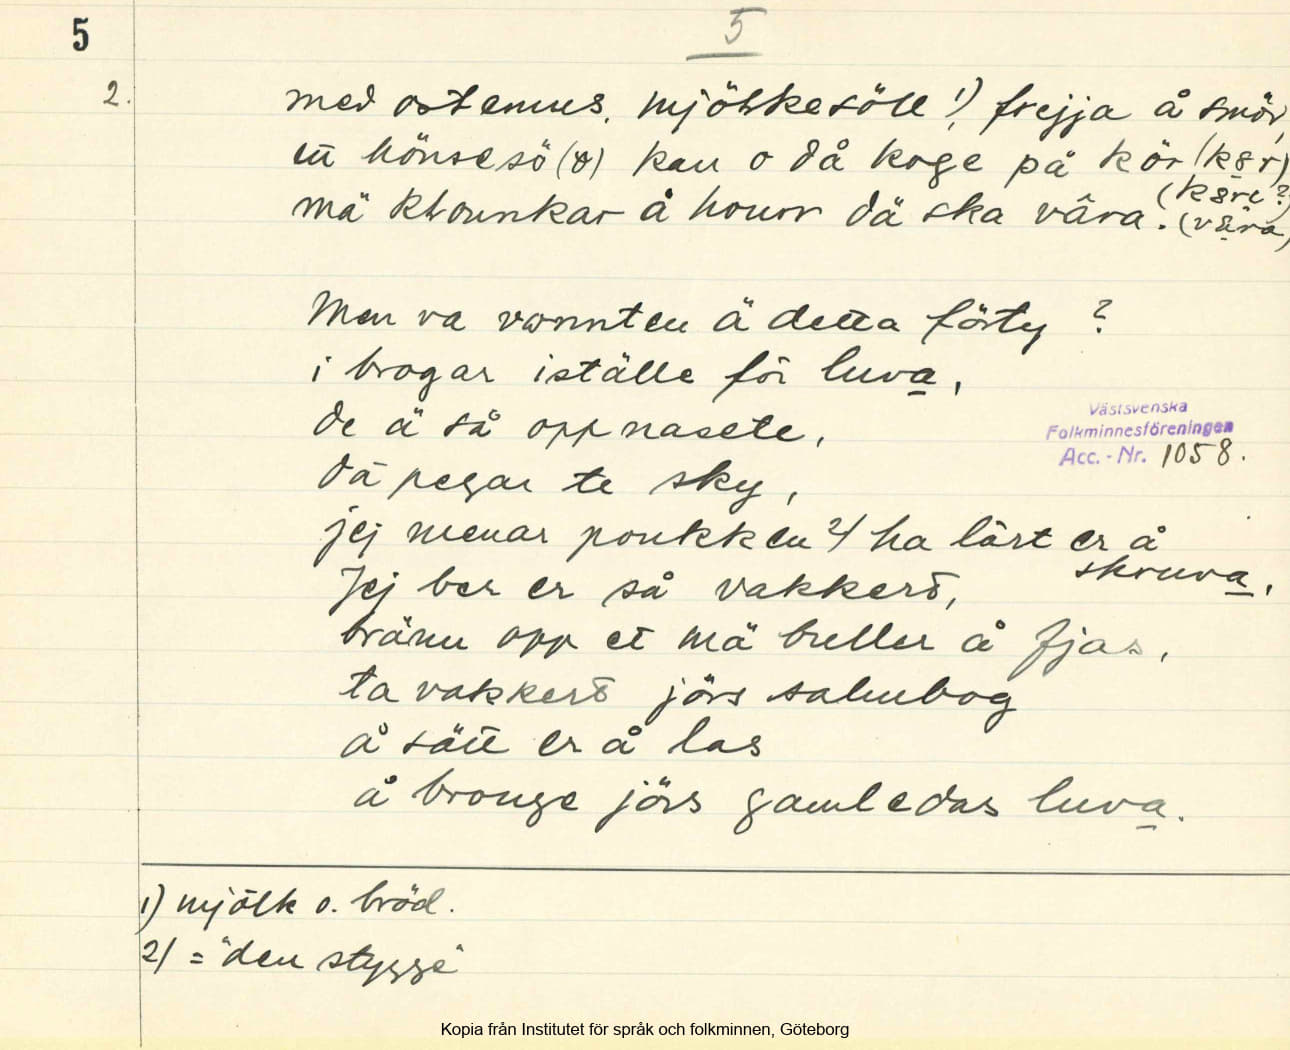 5
5
2.
med ostemus, mjölkesöll 1), frejja å smör,
ett hönsesö (o) kan o då koge på kör (k8r)
(k8re?)
mä klounkar å hourr dä ska vâra. (v8ra)
Men va vonnten ä detta förty ?
i brogar iställe för luva,
de ä så oppnasete,
dä pegar te sky,
jej menar poukken 2) ha lärt er å
skruva,
Jej ber er så vakkert,
bränn opp et mä buller å fjas,
ta vakkert jörs salmbog
å sätt er å las
å brouge jörs gamledas luva.
Västsvenska
Folkminnesföreningen
Acc.-Nr. 1058.
1) mjölk o. bröd.
2) = "den stygge"
Kopia från Institutet för språk och folkminnen, Göteborg